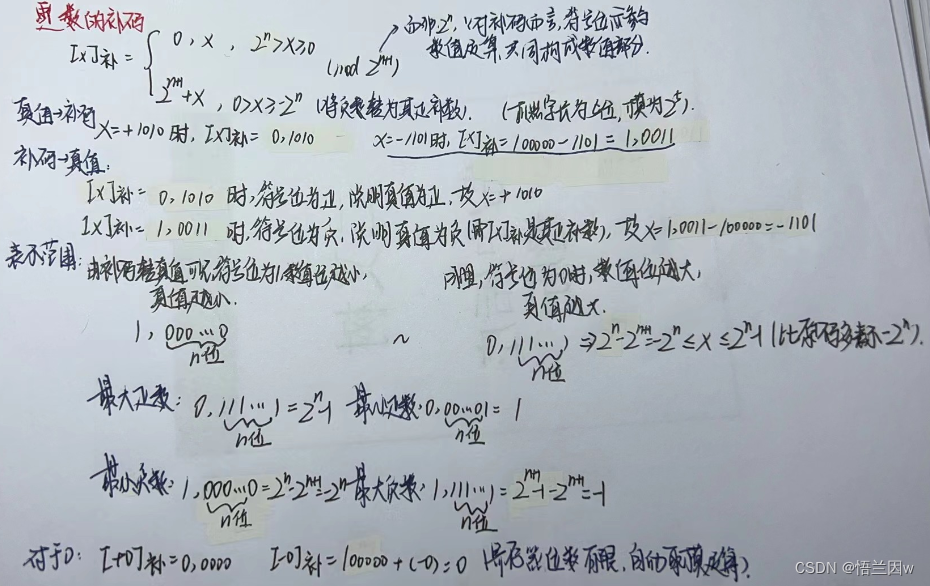 整数的补码
[x]补 = { 0,x , 2ⁿ>x≥0
2ⁿ⁺¹+x , 0>x≥-2ⁿ (mod 2ⁿ⁺¹)
而非2ⁿ,∵对补码而言,符号位亦参与
数值运算,共同构成数值部分.
(将负数转为其正补数). (下例字长为5位,模为2⁵).
真值→补码 x=+1010时, [x]补=0,1010 x=-1101时,[x]补=100000-1101=1,0011
补码→真值:
[x]补= 0,1010 时,符号位为正,说明真值为正,故x=+1010
[x]补= 1,0011 时,符号位为负,说明真值为负(即[x]补是其正补数),故x=1,0011-100000=-1101
表示范围:由补码转真值可知,符号位为1,数值位越小, 同理,符号位为0时,数值位越大,
真值越小. 真值越大.
1,000…0 ~ 0,111…1 ⇒2ⁿ-2ⁿ⁺¹=-2ⁿ≤x≤2ⁿ-1(比原码多表示-2ⁿ).
n位 n位
最大正数: 0,111…1=2ⁿ-1 最小正数:0,00…01= 1
n位 n位
最小负数: 1,000…0=2ⁿ-2ⁿ⁺¹=-2ⁿ 最大负数: 1,111…1=2ⁿ⁺¹-1-2ⁿ⁺¹=-1
n位 n位
对于0: [+0]补=0,0000 [-0]补=100000+(-0)=0 (寄存器位数有限,自动取模运算).
CSDN @悟兰因w